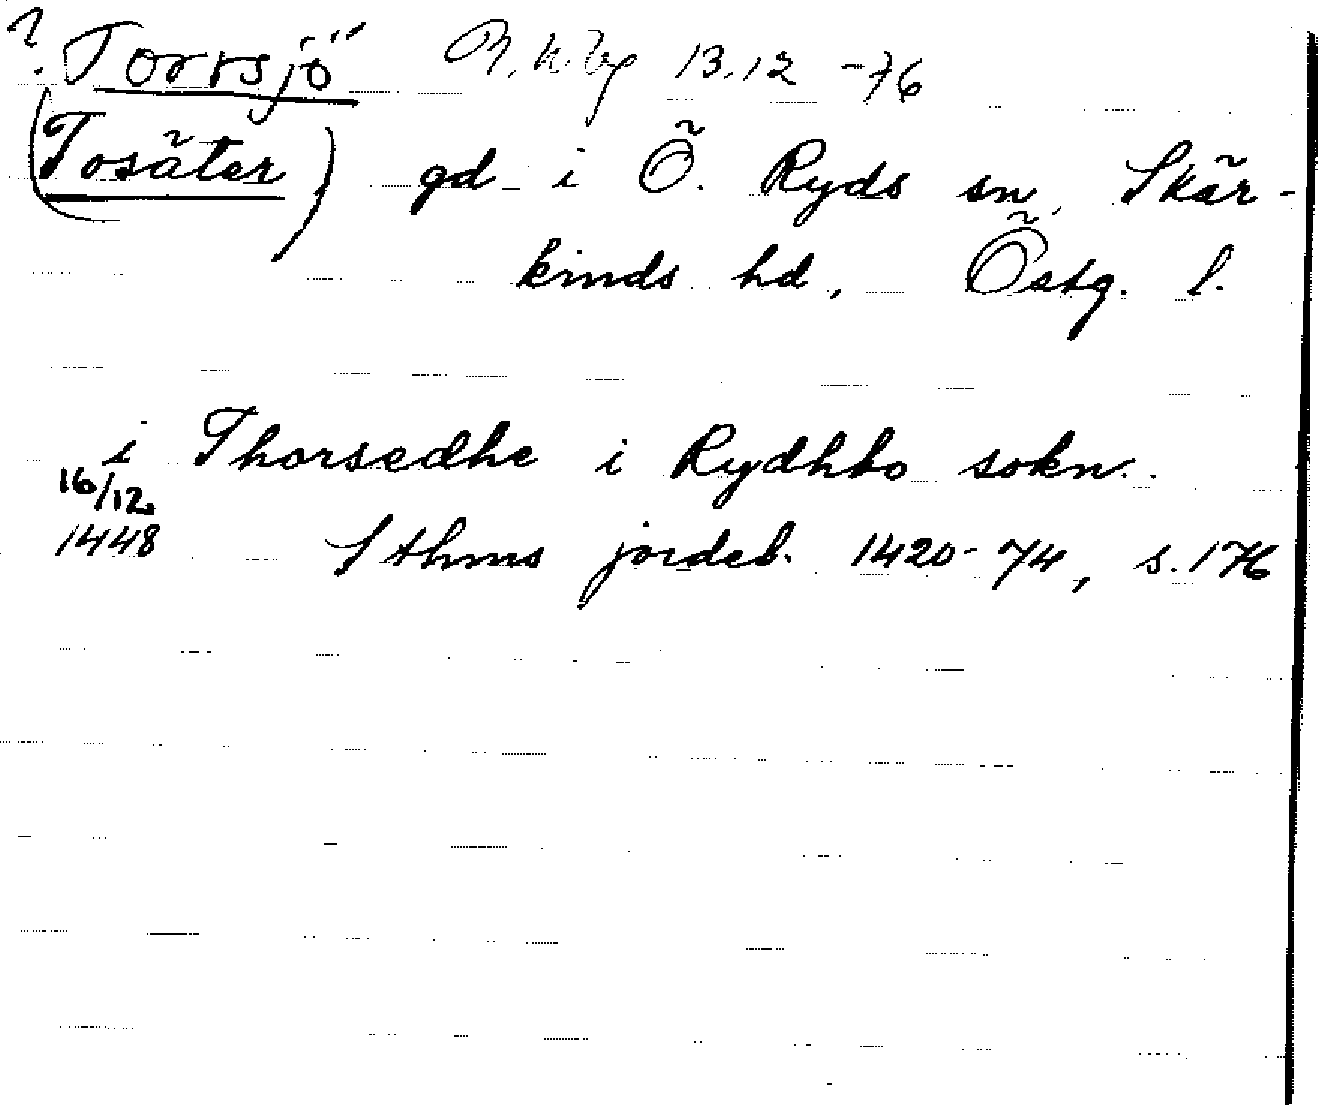 ? Torrsjö 13.12 -76
(Tosäter) gd i Ö. Ryds sn, Skär-
kinds hd, Östg. l.
i Thorsedhe i Rydhbo sokn.
16/12
1448 Sthms jordeb. 1420-74, s. 176